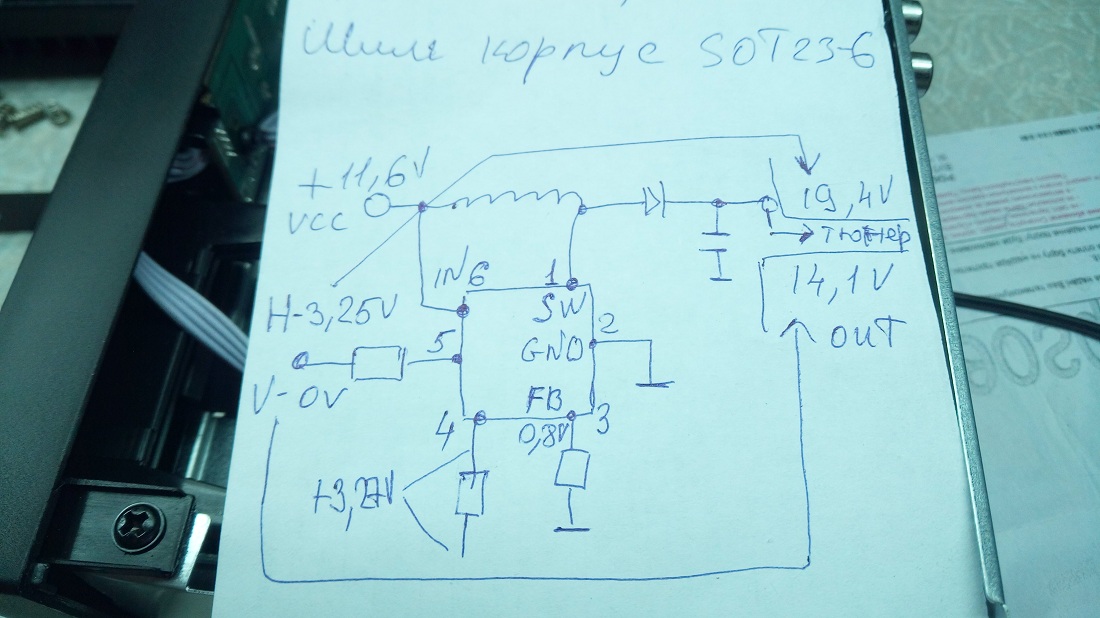 Шим корпус SOT23-6
+11,6V
VCC
19,4V
тюнер
14,1V
OUT
IN 6
1
SW
H-3,25V
5
2
GND
V-0V
FB
4
0,8V
3
+3,27V